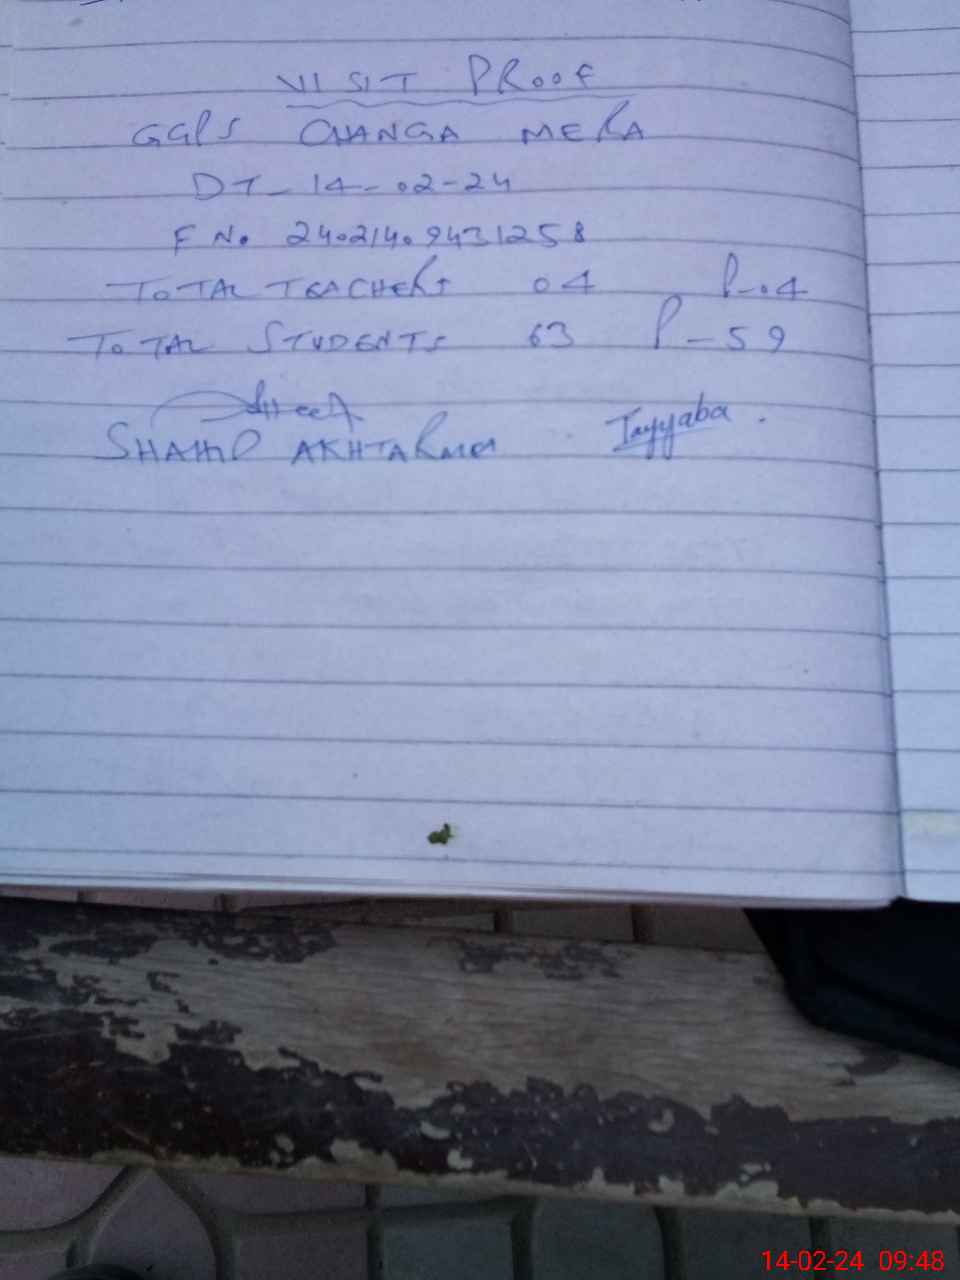 VISIT PROOF
GGPS CHANGA MERA
DT - 14-02-24
F No. 24021409431258
TOTAL TEACHERS 04 P-04
TOTAL STUDENTS 63 P-59
AKHTAR Tayyaba.
14-02-24 09:48